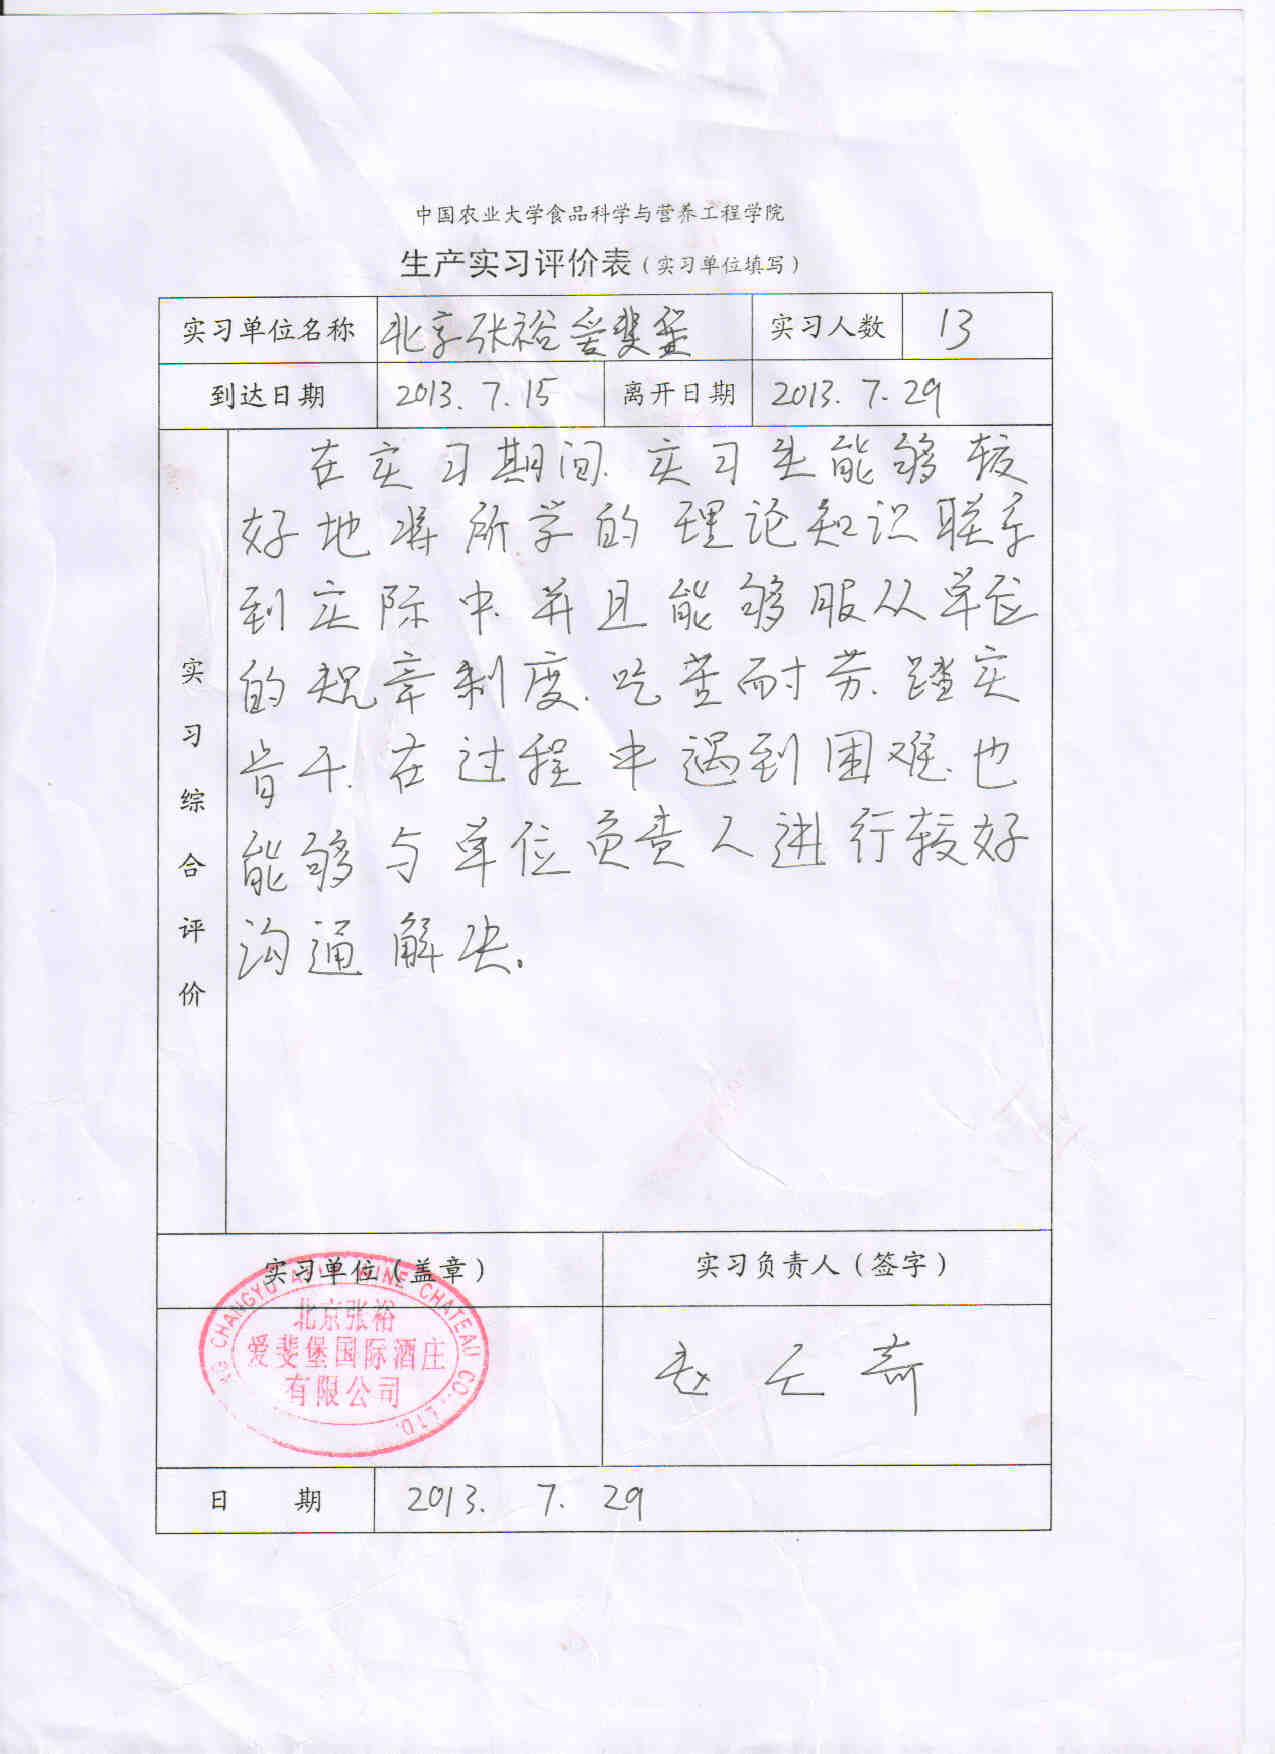 中国农业大学食品科学与营养工程学院
生产实习评价表（实习单位填写）
实习单位名称 北京张裕爱斐堡 实习人数 13
到达日期 2013.7.15 离开日期 2013.7.29
实习综合评价
在实习期间.实习生能够较
好地将所学的理论知识联系
到实际中.并且能够服从单位
的规章制度.吃苦耐劳.踏实
肯干.在过程中遇到困难.也
能够与单位负责人进行较好
沟通解决.
实习单位（盖章） 实习负责人（签字）
CHANGYU AFIP WINE CHATEAU CO., LTD.
北京张裕
爱斐堡国际酒庄
有限公司
赵 奇
日 期 2013. 7. 29